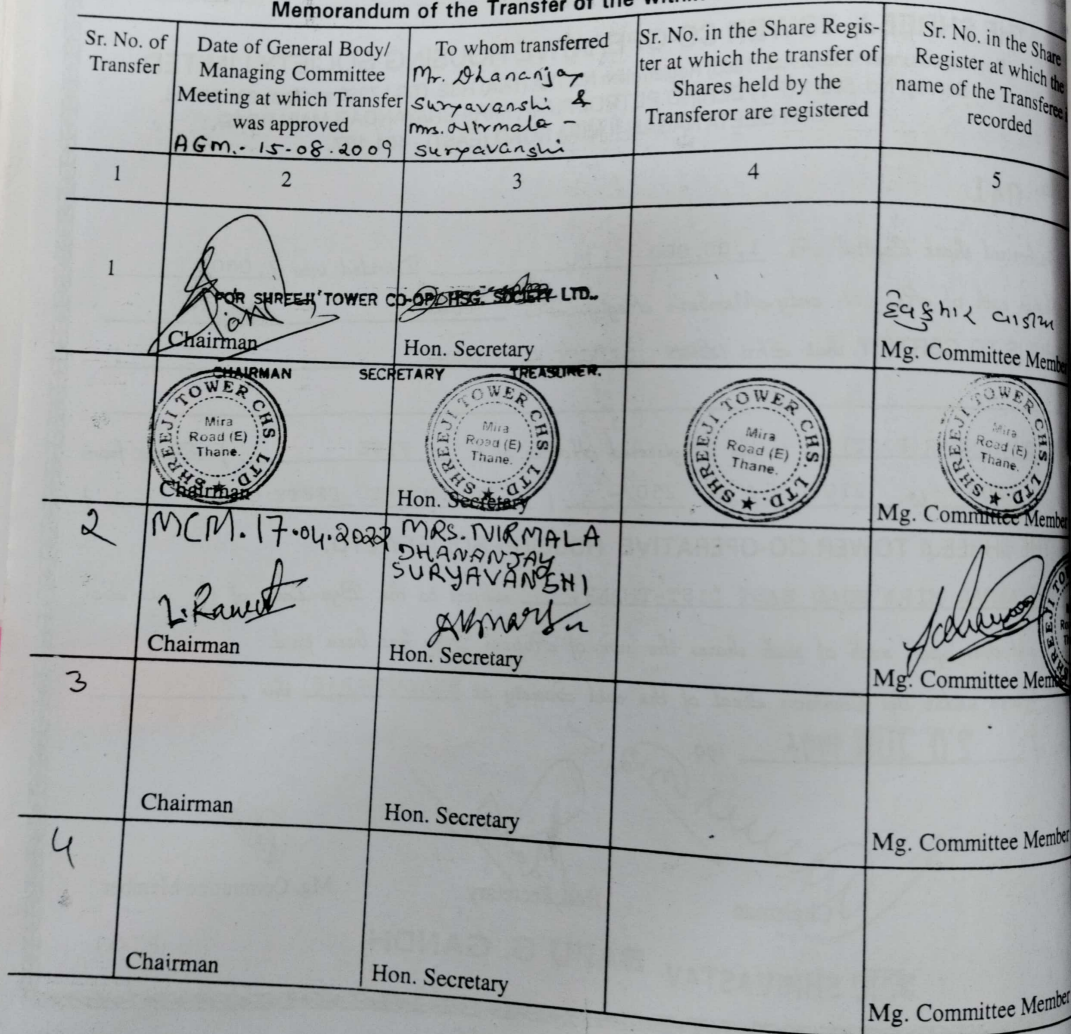 Memorandum of the Transfer of the
Sr. No. of
Transfer
Date of General Body/
Managing Committee
Meeting at which Transfer
was approved
AGM.- 15-08-2009
To whom transferred
Mr. Dhananjay
Suryavanshi &
Mrs. Nirmala -
Suryavanshi
Sr. No. in the Share Regis-
ter at which the transfer of
Shares held by the
Transferor are registered
Sr. No. in the Share
Register at which the
name of the Transferee
recorded
1
2
3
4
5
1
FOR SHREEJI TOWER CO-OP. HSG. SOCIETY LTD.
Chairman
Hon. Secretary
Mg. Committee Member
CHAIRMAN SECRETARY TREASURER.
SHREEJI TOWER CHS. LTD
Mira
Road (E)
Thane.
SHREEJI TOWER CHS. LTD
Mira
Road (E)
Thane.
SHREEJI TOWER CHS. LTD
Mira
Road (E)
Thane.
SHREEJI TOWER CHS. LTD
Mira
Road (E)
Thane.
Chairman
Hon. Secretary
Mg. Committee Member
2
MCM. 17.04.2022
MRS. NIRMALA
DHANANJAY
SURYAVANSHI
Chairman
Hon. Secretary
Mg. Committee Member
3
Chairman
Hon. Secretary
Mg. Committee Member
4
Chairman
Hon. Secretary
Mg. Committee Member